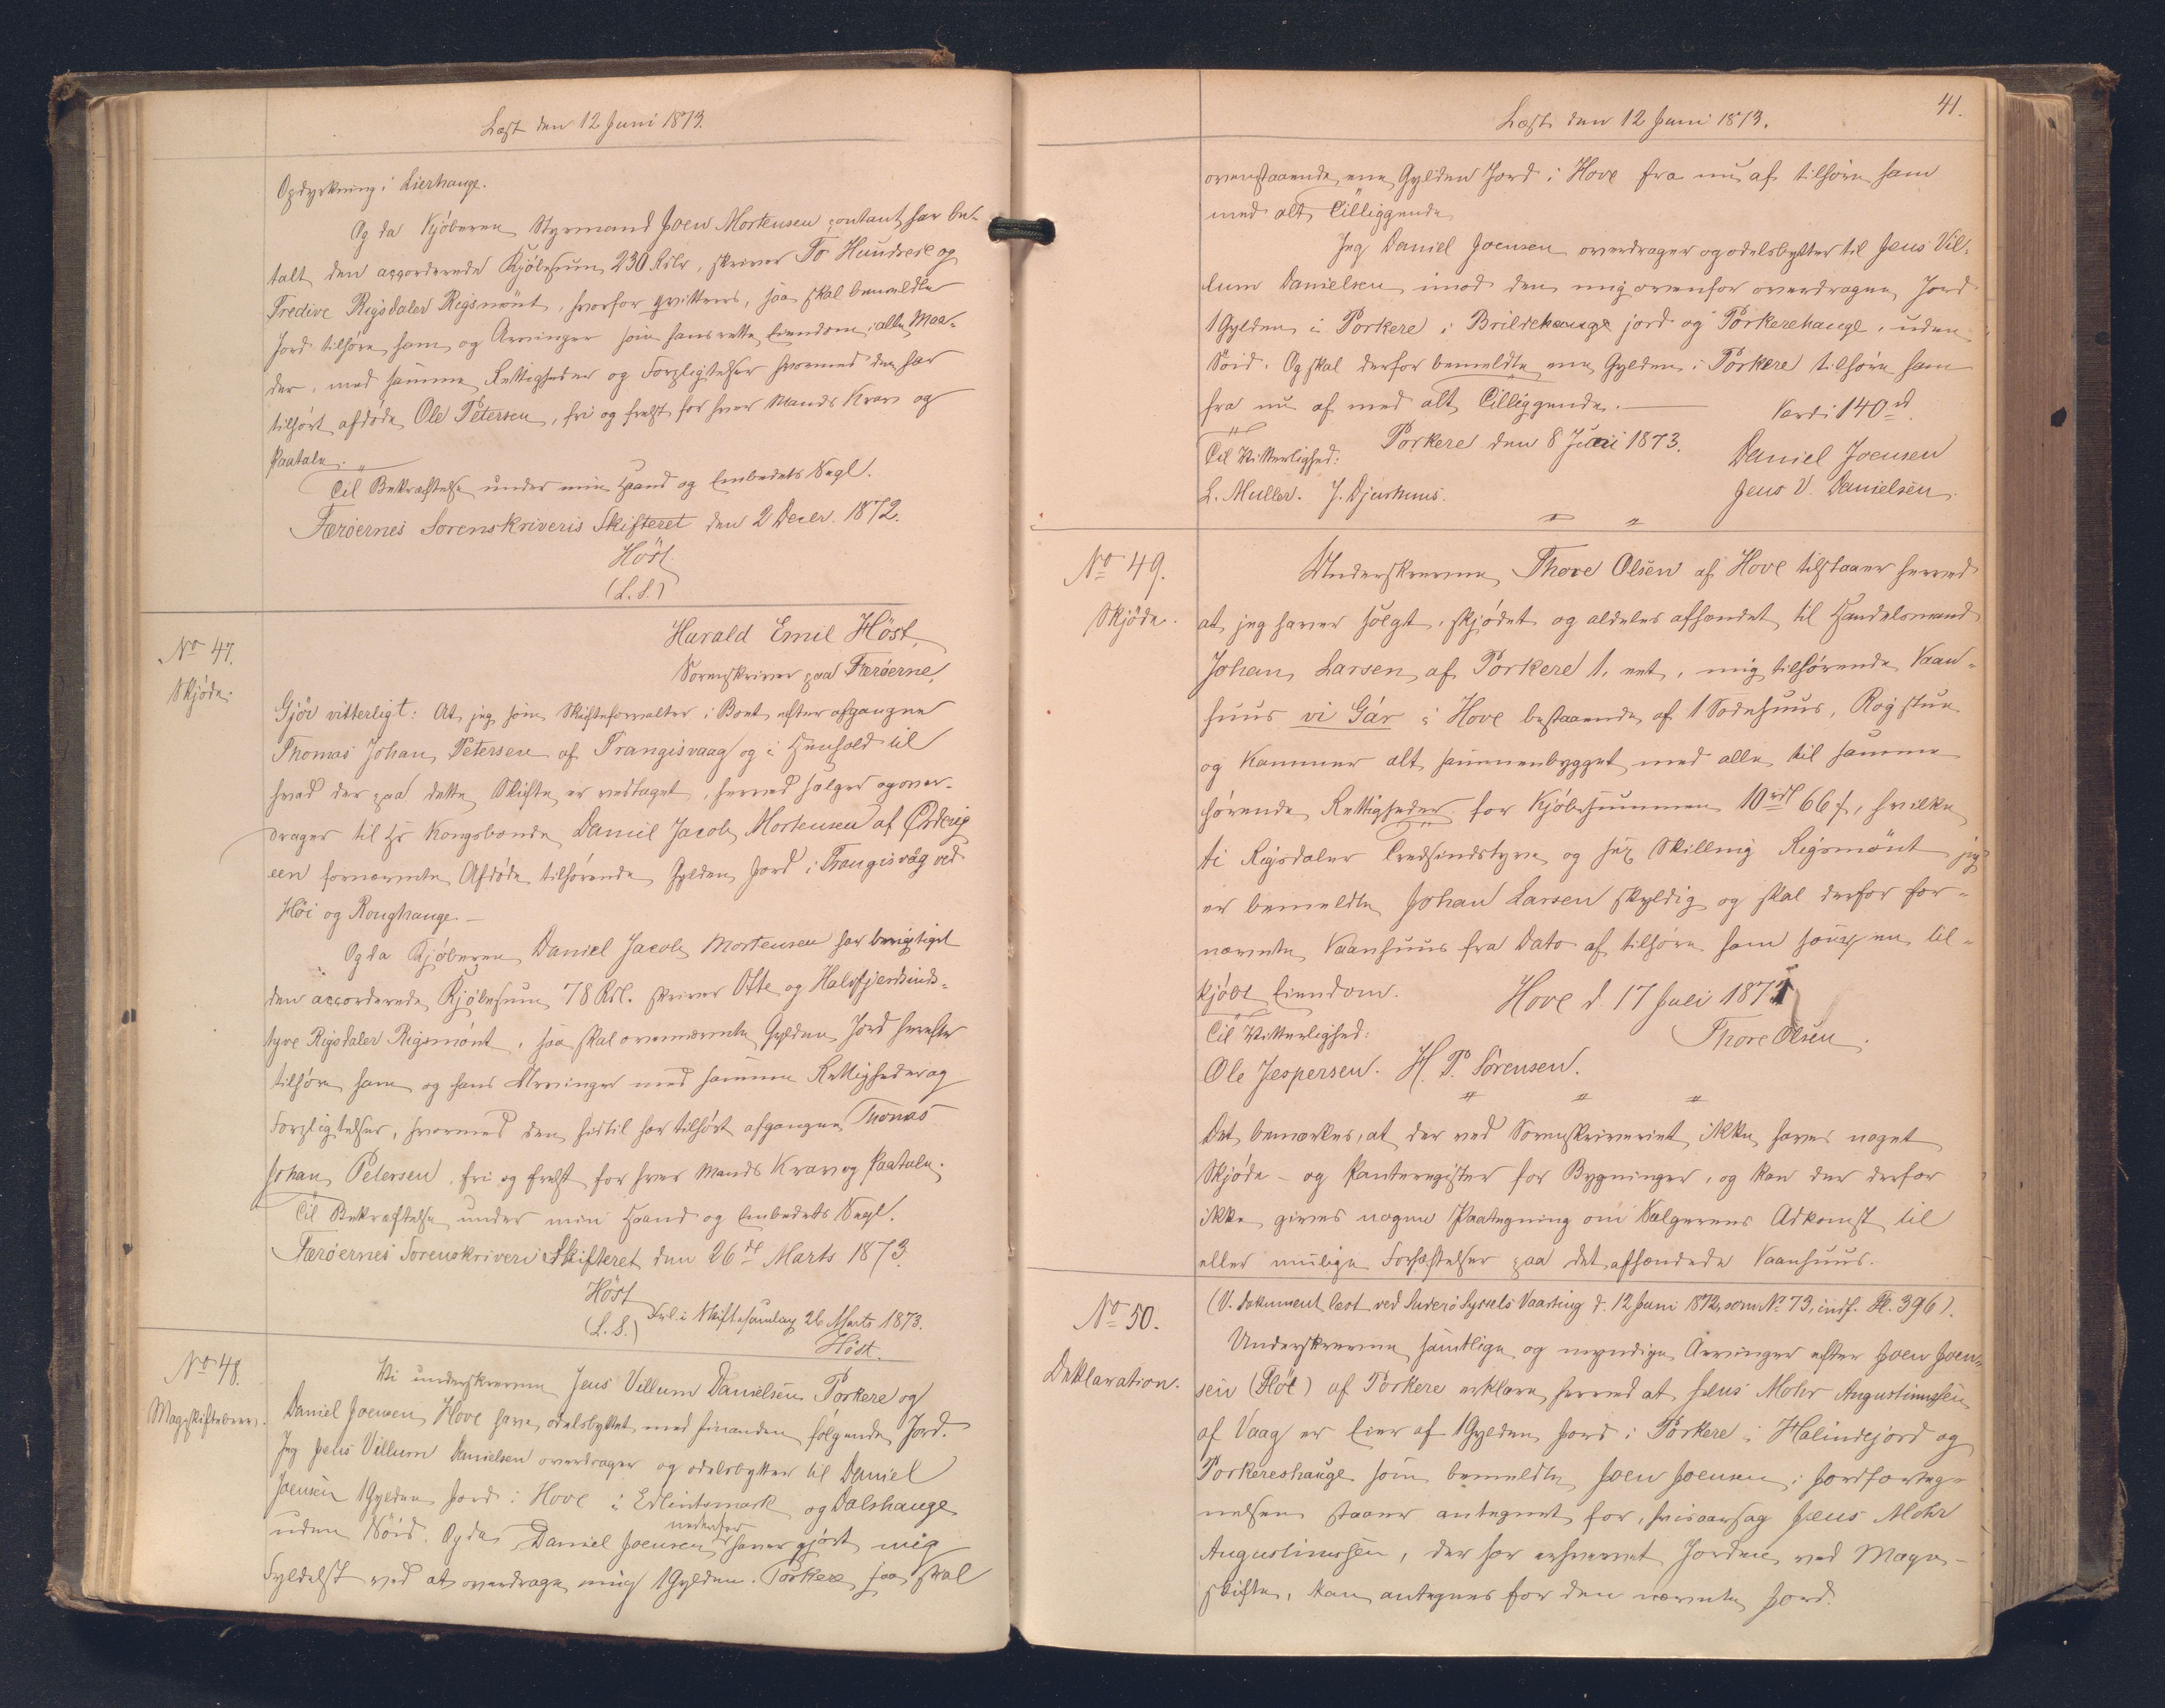 Læst den 12 Juni 1873.
Opdyrkning i Lierhauge.
Og da Kjøberen Styrmand Joen Mortensen contant har be-
talt den accorderede Kjøbesum 230 Rdlr, skriver To Hundrede og
Tredive Rigsdaler Rigsmönt, hvorfor qvitteres, saa skal bemeldte
Jord tilhøre ham og Arvinger som hans rette Eiendom i alle Maa-
der, med samme Rettigheder og Forpligtelser hvormed den har
tilhørt afdøde Ole Petersen, fri og frelst for hver Mands Krav og
Paatale.
Til Bekræftelse under min Haand og Embedets Segl.
Færøernes Sorenskriveris Skifteret den 2 Decbr. 1872.
Höst
(L. S.)
No 47.
Skjøde.
Harald Emil Höst,
Sorenskriver paa Færøerne,
Gjör vitterligt: At jeg som Skifteforvalter i Boet efter afgangne
Thomas Johan Petersen af Trangisvaag og i Henhold til
hvad der paa dette Skifte er vedtaget, herved sælger og over-
drager til Hr Kongsbonde Daniel Jacob Mortensen af Ørderig
een fornævnte Afdøde tilhørende Gylden Jord i Trangisvåg ved
Höi og Roughauge. —
Og da Kjøberen Daniel Jacob Mortensen har berigtiget
den accorderede Kjøbesum 78 Rdl. skriver Otte og Halvfjerdsinds-
tyve Rigsdaler Rigsmönt, saa skal ovennævnte Gylden Jord herefter
tilhøre ham og hans Arvinger med samme Rettigheder og
Forpligtelser, hvormed den hidtil har tilhørt afgangne Thomas
Johan Petersen, fri og frelst for hver Mands Krav og Paatale.
Til Bekræftelse under min Haand og Embedets Segl.
Færøernes Sorenskriveri Skifteret den 26de Marts 1873.
Höst
(L. S.)
i Skiftesamling 26 Marts 1873.
Höst.
No 48.
Mageskiftebrev.
Vi underskrevne Jens Villum Danielsen Porkere og
Daniel Joensen Hove have odelsbyttet med hinanden følgende Jord.
Jeg Jens Villum Danielsen overdrager og odelsbytter til Daniel
Joensen 1 Gylden Jord i Hove i Edlintsmark og Dalshauge
uden Söid. Og da Daniel Joensen nedenfor haver gjørt mig
Fyldest ved at overdrage mig 1 Gylden i Porkere, saa skal
41.
Læst den 12 Juni 1873.
ovenstaaende ene Gylden Jord i Hove fra nu af tilhøre ham
med alt Tilliggende
Jeg Daniel Joensen overdrager og odelsbytter til Jens Vil-
lum Danielsen imod den mig ovenfor overdragne Jord
1 Gylden i Porkere i Brildehauge jord og Porkerehauge, uden
Söid. Og skal derfor bemeldte ene Gylden i Porkere tilhøre ham
fra nu af med alt Tilliggende. —
Værdi 140 d.
Porkere den 8 Juni 1873.
Til Vitterlighed:
Daniel Joensen
L. Muller. J. Djurhuus.
Jens V. Danielsen.
No 49.
Skjöde.
Underskrevne Thore Olsen af Hove tilstaaer herved
at jeg haver solgt, skjødet og aldeles afhændet til Handelsmand
Johan Larsen af Porkere 1, eet, mig tilhørende Vaan-
huus vi Gár i Hove bestaaende af 1 Sodehuus, Rogstue
og Kammer alt sammenbygget med alle til samme
hørende Rettigheder for Kjøbesummen 10 rdl 66 s, hvilke
ti Rigsdaler Tredsindstyve og sex Skilling Rigsmönt jeg
er bemeldte Johan Larsen skyldig og skal derfor for-
nævnte Vaanhuus fra Dato af tilhøre ham som en til-
kjøbt Eiendom.
Hove d. 17 Juli 187
Til Vitterlighed:
Thore Olsen.
Ole Jespersen. H. P. Sörensen.
Det bemærkes, at der ved Sorenskriveriet ikke haves noget
Skjøde- og Panteregister for Bygninger, og kan der derfor
ikke gives nogen Paategning om Sælgerens Adkomst til
eller mulige Forhæftelser paa det afhændede Vaanhuus.
No 50.
Deklaration.
(V. Dokument læst ved Suderö Syssels Vaarting d. 12 Juni 1872, som No 73, indf. Fl. 396).
Underskrevne samtlige og myndige Arvinger efter Joen Joen-
sen (Flöt) af Porkere erklære herved at Jens Mohr Augustinussen
af Vaag er Eier af 1 Gylden Jord i Porkere i Halindejord og
Porkereshauge som bemeldte Joen Joensen i Jordforteg-
nelsen staaer antegnet for, hvisaarsag Jens Mohr
Augustinussen, der har erhvervet Jorden ved Mage-
skifte, kan antegnes for den nævnte Jord.